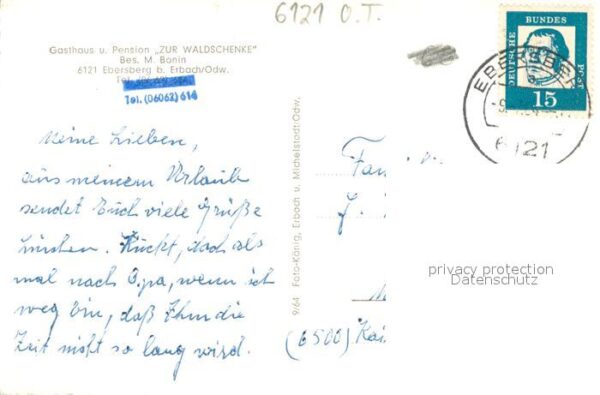 6121 O.T.
Gasthaus u. Pension „ZUR WALDSCHENKE"
Bes. M. Bonin
6121 Ebersberg b. Erbach/Odw.
Tel. (06062) 614
Meine Lieben,
aus meinem Urlaub
sendet Euch viele Grüße
doch als
mal nach Opa, wenn ich
weg bin, daß Ihm die
Zeit nicht so lang wird.
9/64 Foto-König, Erbach u. Michelstadt-Odw.
Fam
(6500)
DEUTSCHE BUNDESPOST
15
EBERSBER
6121
privacy protection
Datenschutz